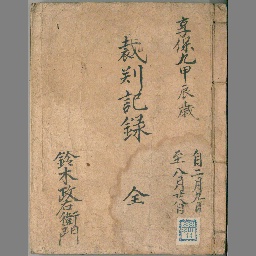 享保九甲辰歳
自二月九日
至八月廿八日
裁判記録 全
鈴木政右衛門